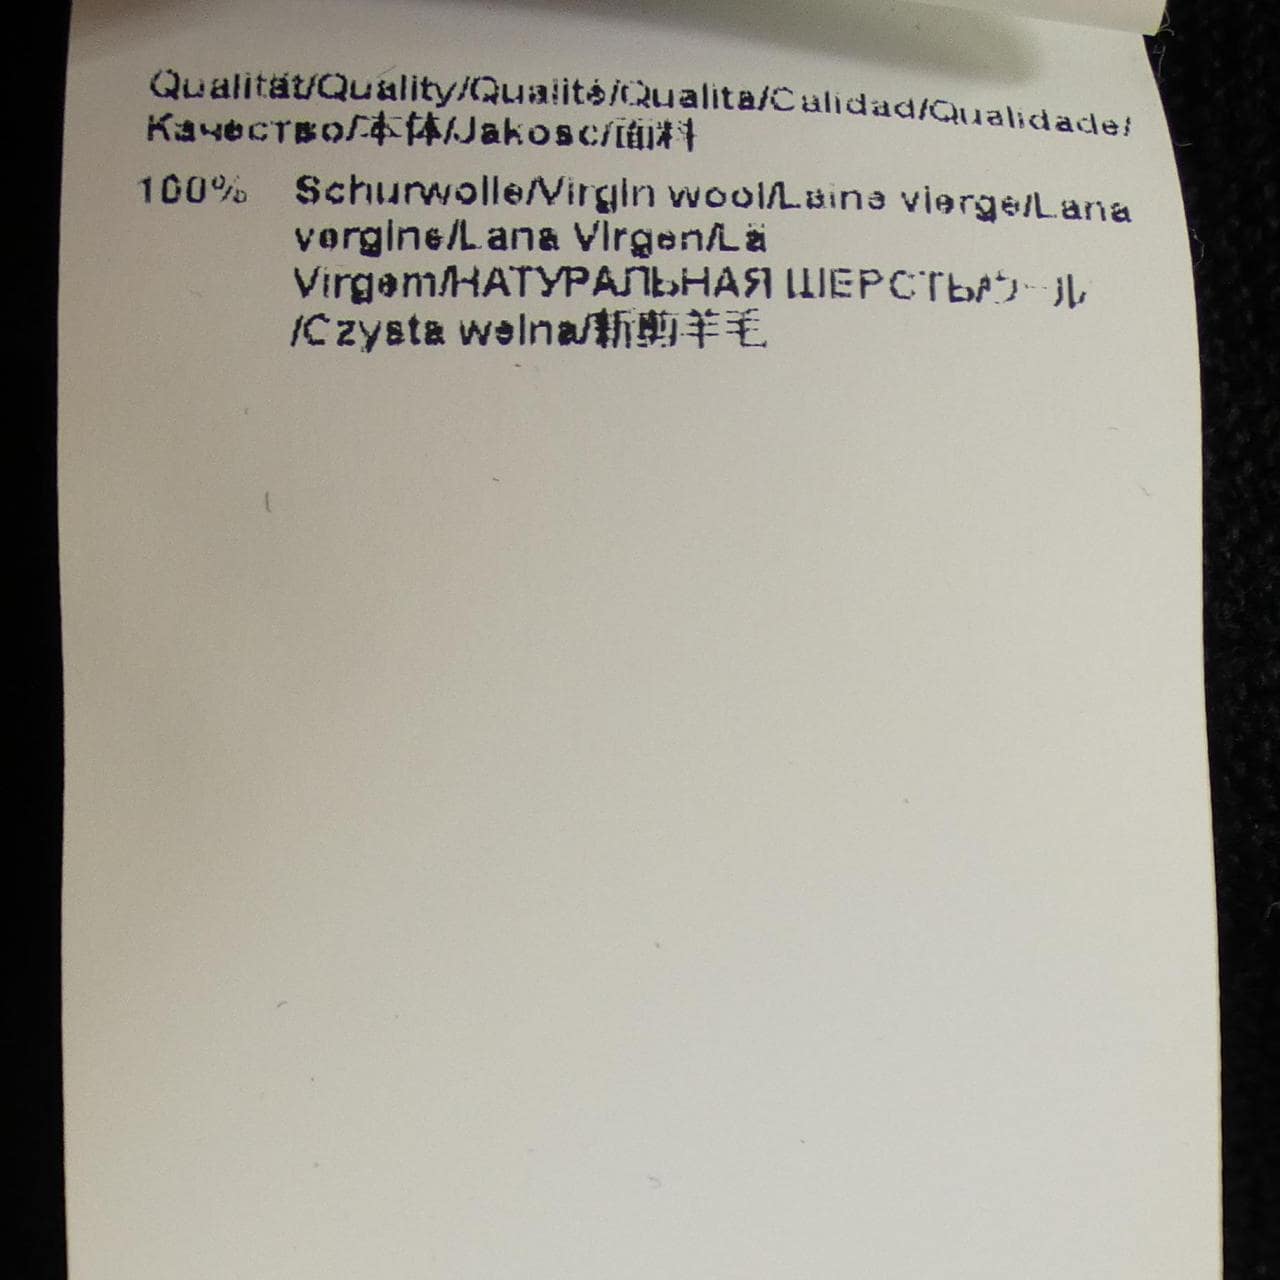 Qualität/Quality/Qualité/Qualita/Calidad/Qualidade/
Качество/本体/Jakosc/面料
100% Schurwolle/Virgin wool/Laine vierge/Lana
vergine/Lana Virgen/Lã
Virgem/НАТУРАЛЬНАЯ ШЕРСТЬ/ウール
/Czysta welna/新剪羊毛